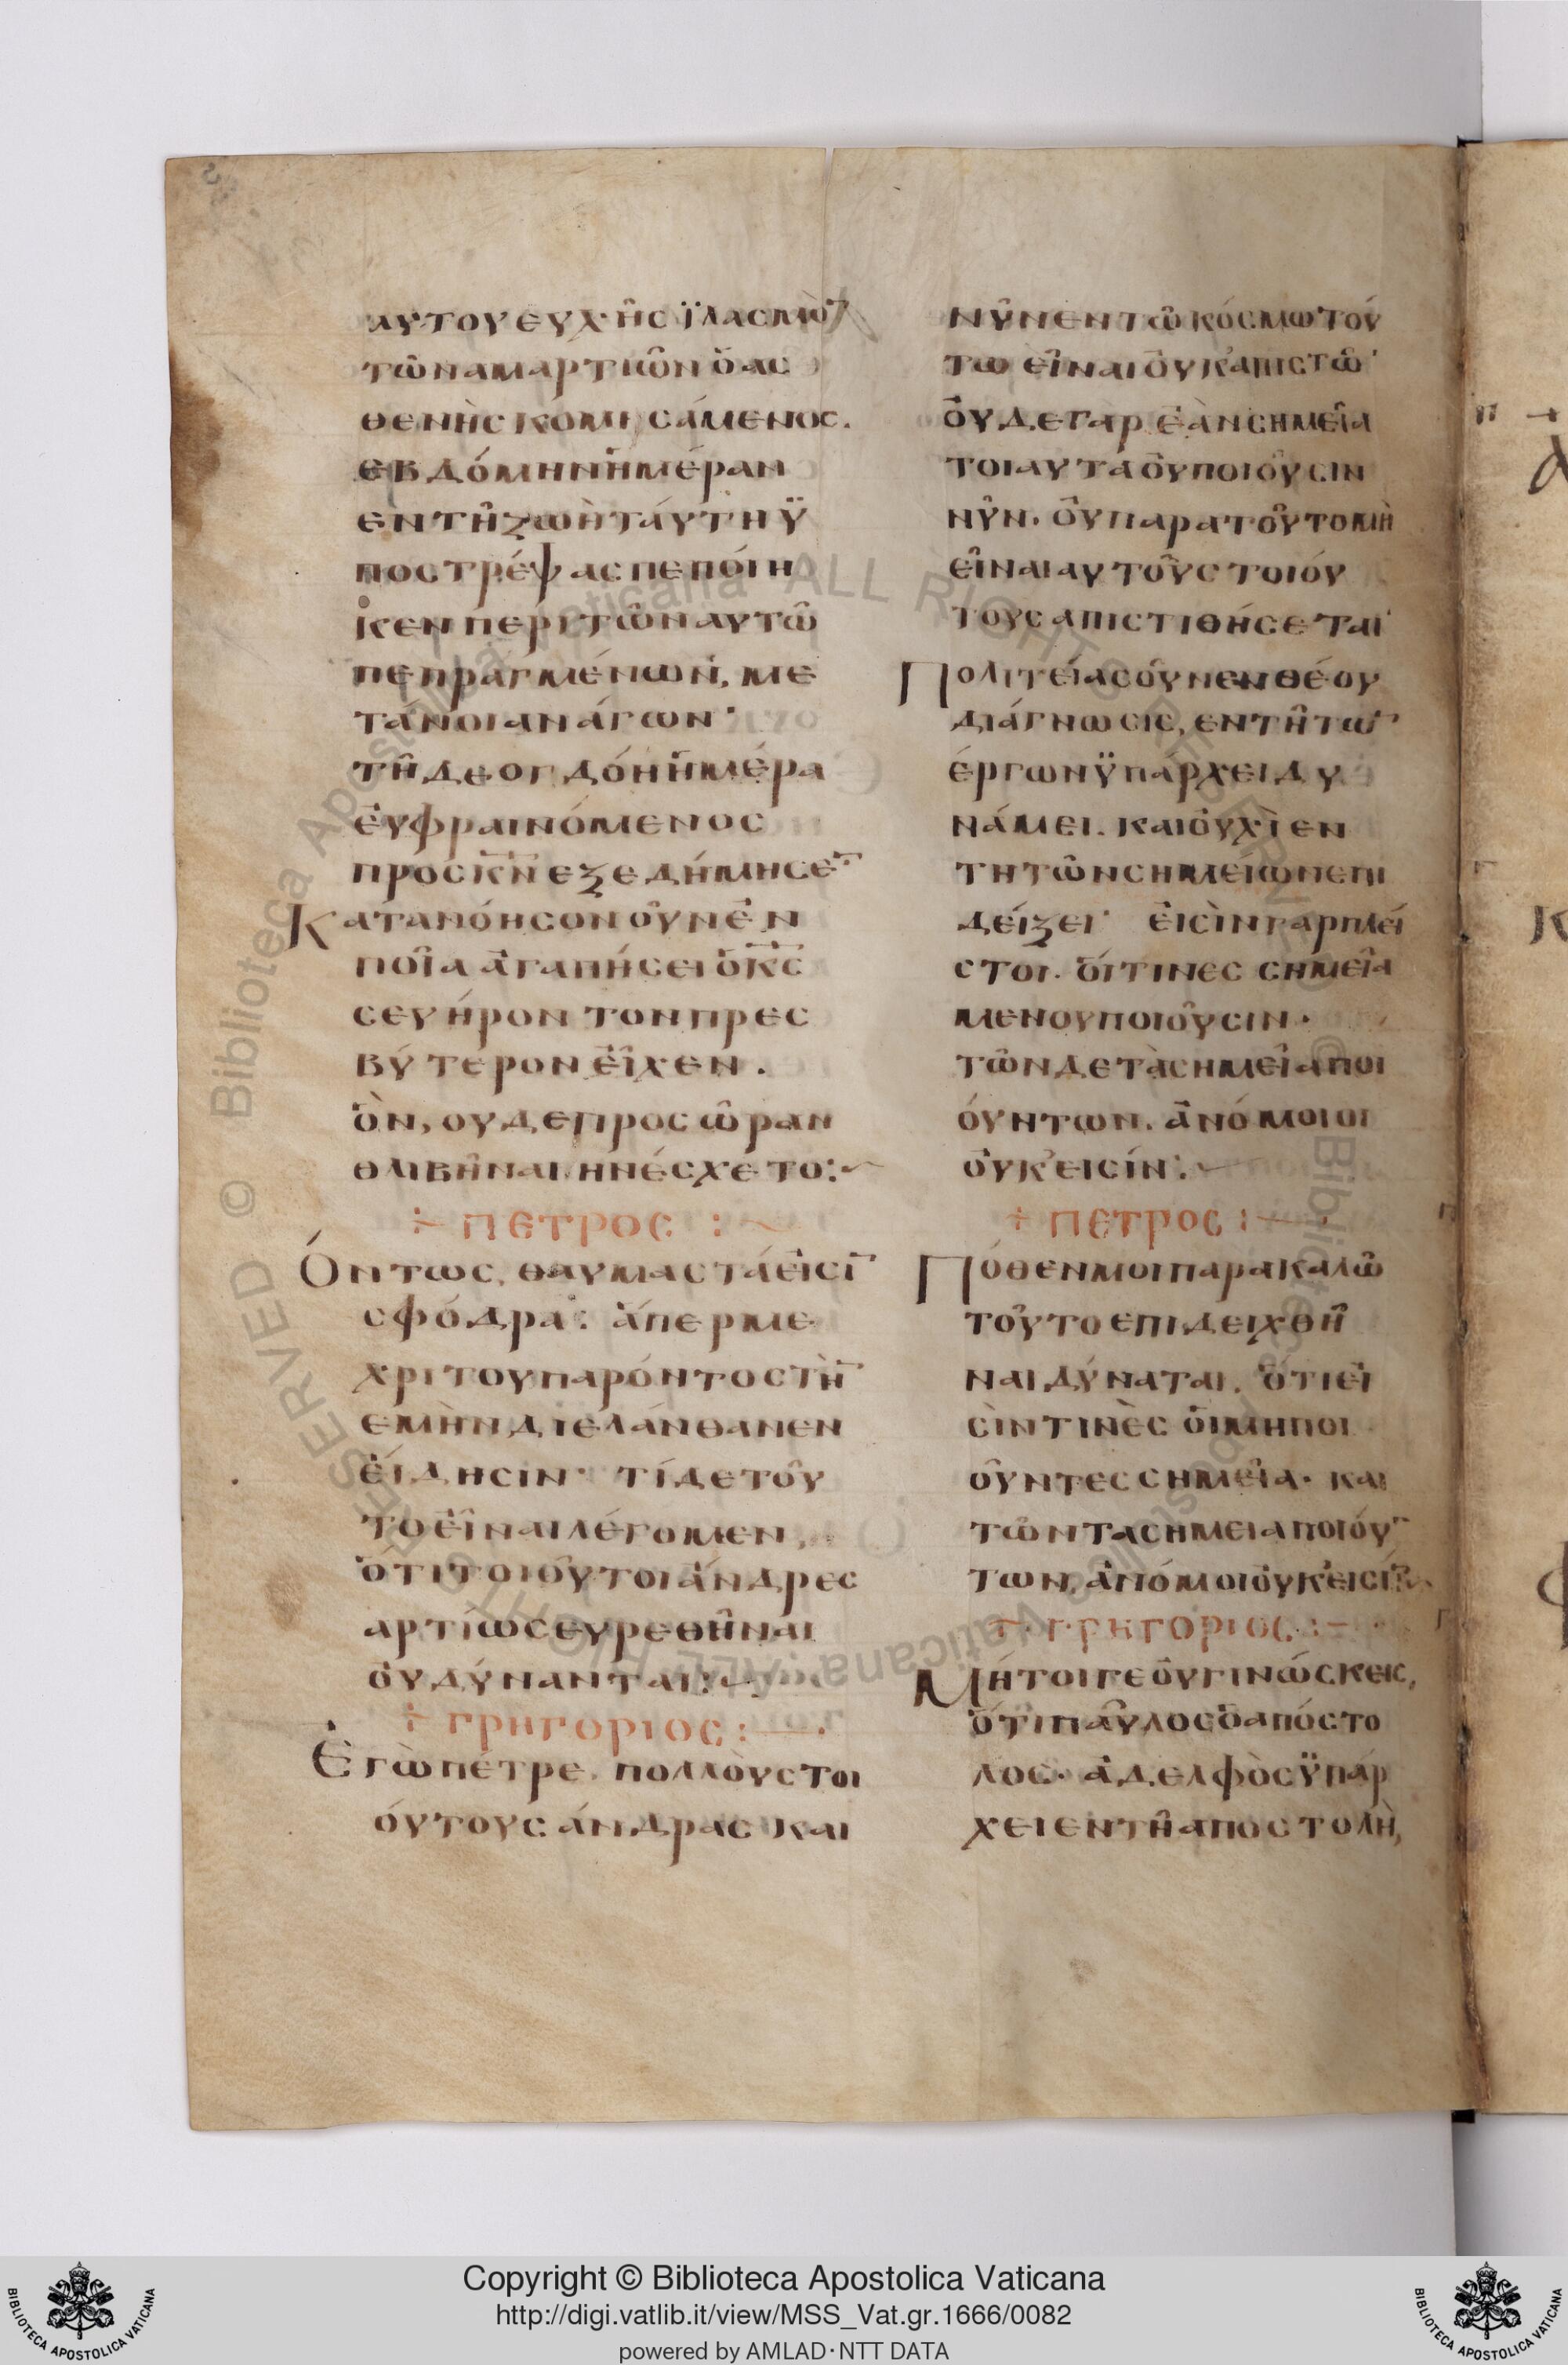 αυτου ευχῆς ϊλασμὸ̄
τῶν αμαρτιῶν ὁ ασ
θενὴς κομισάμενος.
εβδόμην ἡμέραν
εν τῆ ζωῆ τάυτη ϋ
ποστρέψας πεποίη
κεν περι τῶν αυτῶ
πεπραγμένων, με
τάνοιαν άγων·
τῆ δε ογδόη ἡμέρα
ἐυφραινόμενος
προς κ̅ν̅ εξεδήμησε̅
Κατανόησον οὖν ἐν
ποῖα ἀγαπήσει ὁ κ̅ς̅
σευήρον τον πρεσ
βύτερον εἶχεν.
ὃν, ουδε προς ὧραν
θλιβῆναι ηνέσχετο:~
+ ΠΕΤΡΟΣ :~
Όντως, θαυμαστά ἐισι̅
σφόδρα: ἅπερ με
χρι του παρόντος τὴ̅
εμὴν διελάνθανεν
ἐίδησιν· τί δε τοῦ
το εἶναι λέγομεν,
ὅτι τοιοῦτοι ἄνδρες
αρτίως ευρεθῆναι
οὐ δύνανται:~
+ ΓΡΗΓΟΡΙΟΣ :—·
Ἐγὼ πέτρε. πολλὸυς τοι
όυτους άνδρας και
νῦν εν τῶ κόσμω τού
τω εἶναι ὀυκ ἀπιστῶ·
ὀυδε γαρ ἐὰν σημεῖα
τοιαυτα ὀυ ποιοῦσιν
νῦν. ὀυ παρα τοῦτο μὴ
εἶναι αυτοῦς τοιόυ
τους απιστιθήσεται·
Πολιτείας οὖν ενθέου
διάγνωσις, εν τῆ τῶ̅
έργων ϋπάρχει δυ
νάμει. και ὀυχὶ εν
τη τῶν σημείων επι
δείξει· ἐισὶν γαρ πλεί
στοι. ὅιτινες σημεῖα
μεν ου ποιοῦσιν·
τῶν δε τὰ σημεῖα ποι
όυντων. ἀνόμοιοι
ὀυκ εισίν:~
+ ΠΕΤΡΟΣ :—·
Πόθεν μοι παρακαλῶ
τοῦτο επιδειχθῆ
ναι δύναται. ὅτι εἰ
σὶν τινὲς ὁι μη ποι
οῦντες σημεῖα· και
τῶν τα σημεια ποιόυ̅
των, ἀνόμοιοι ὀυκ ἐισί̅:~
+ ΓΡΗΓΟΡΙΟΣ :—
Μήτοιγε ὀυ γινώσκεις,
ὅτι παῦλος ὁ απόστο
λος· ἀδελφὸς ϋπάρ
χει εν τῆ αποστολὴ,
Copyright © Biblioteca Apostolica Vaticana
http://digi.vatlib.it/view/MSS_Vat.gr.1666/0082
powered by AMLAD·NTT DATA